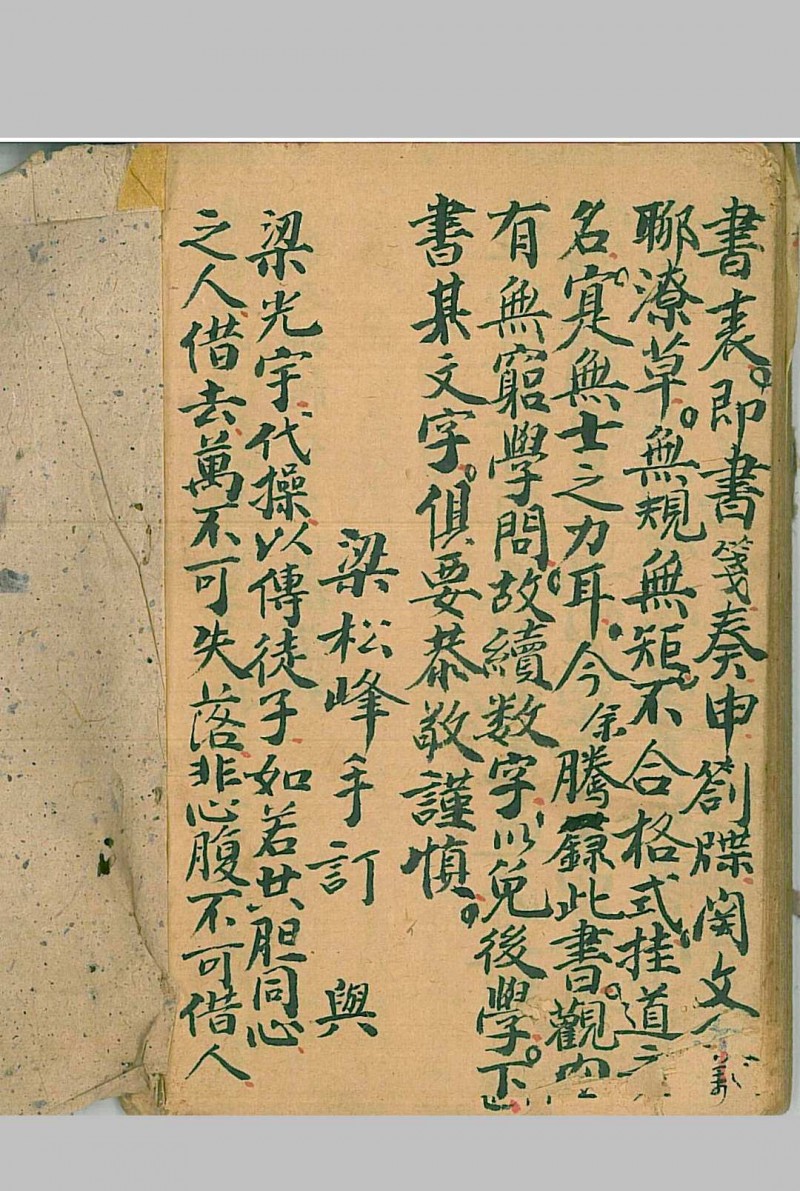 書表。即書箋奏申劄牒関文
聊潦草。無規無矩。不合格式。挂道之
名。寔無士之力耳。今余騰錄此書。觀内
有無窮學問。故續数字以免後學。下
書某文字。俱要恭敬謹慎。
梁松峰手訂 與
梁光宇代操以傳徒子如若共胆同心
之人借去萬不可失落非心腹不可借人